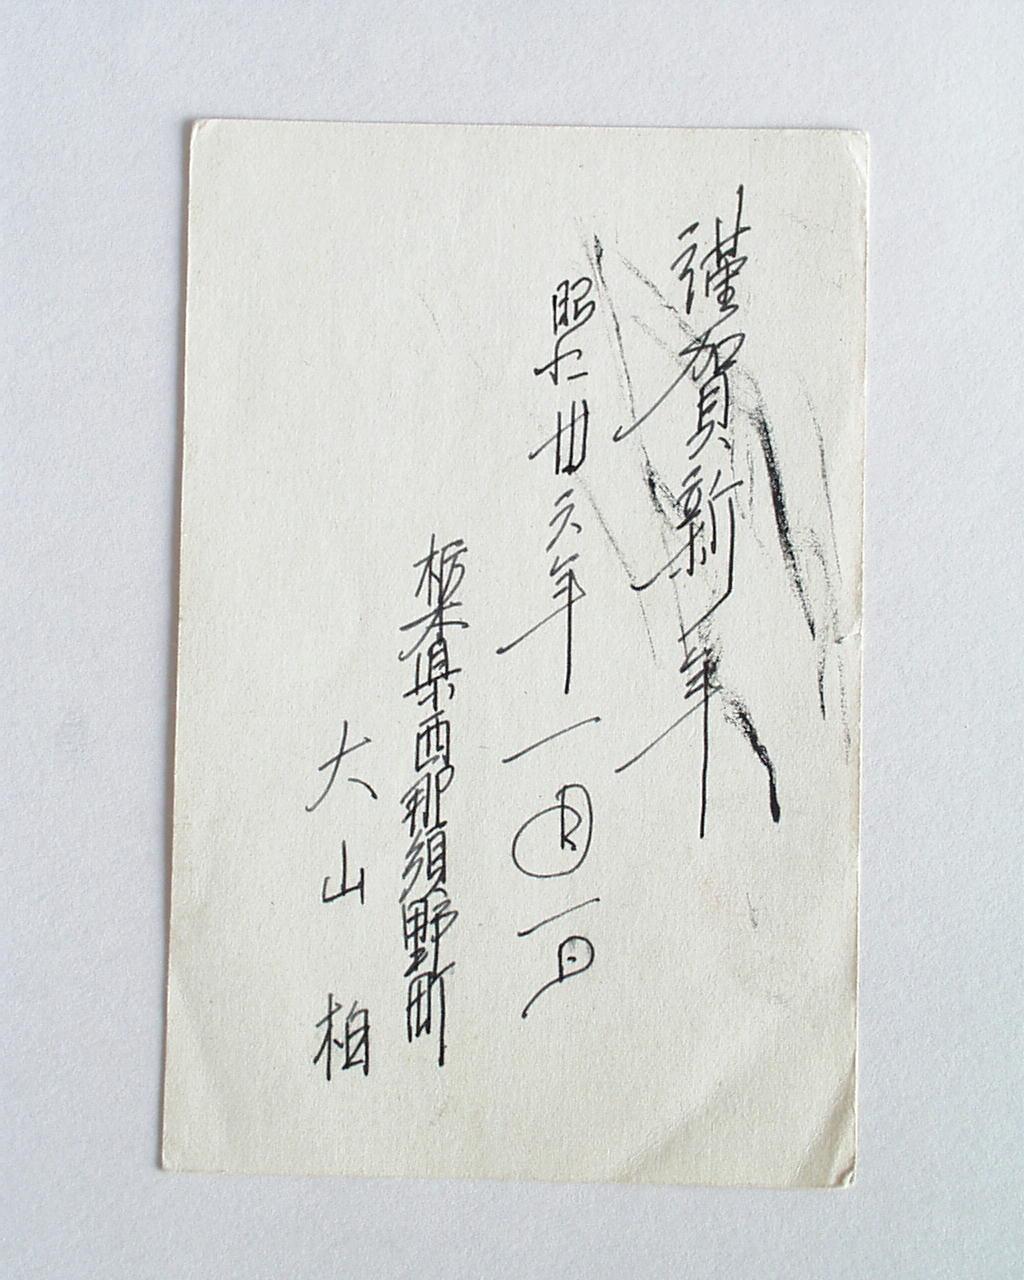 謹賀新年
昭仁卅六年一月一日
栃木県西那須野町
大山柏